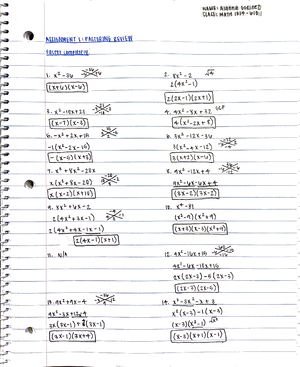 CLASS: MATH
ASSIGNMENT 1: FACTORING REVIEW
FACTOR COMPLETELY
1. x² - 36
(x+6)(x-6)
2. 8x² - 2
2(4x² - 1)
2(2x-1)(2x+1)
3. x² - 10x + 21
(x-7)(x-3)
4. 4x² - 8x + 32 GCF
4(x² - 2x + 8)
5. -x² + 2x + 15
-1(x² - 2x - 15)
6. 3x² - 12x - 36
3(x² - 4x - 12)
3(x+2)(x-6)
7. x³ + 8x² - 20x
x(x² + 8x - 20)
x(x-2)(x+10)
8. 9x² - 12x + 4
9x² - 6x - 6x + 4
(3x-2)(3x-2)
9. 8x² + 6x - 2
2(4x² + 3x - 1)
2(4x² + 4x - 1x - 1)
2(4x-1)(x+1)
10. x⁴ - 81
(x² - 9)(x² + 9)
(x+3)(x-3)(x²+9)
11. N/A
12. 4x² - 16x + 15
4x² - 6x - 10x + 15
2x(2x-3) - 5(2x-3)
(2x-3)(2x-5)
13. 9x² + 9x - 4
9x² - 3x + 12x - 4
3x(3x-1) + 4(3x-1)
(3x-1)(3x+4)
14. x³ - 3x² - x + 3
x²(x-3) - 1(x-3)
(x-3)(x²-1)
(x-3)(x+1)(x-1)